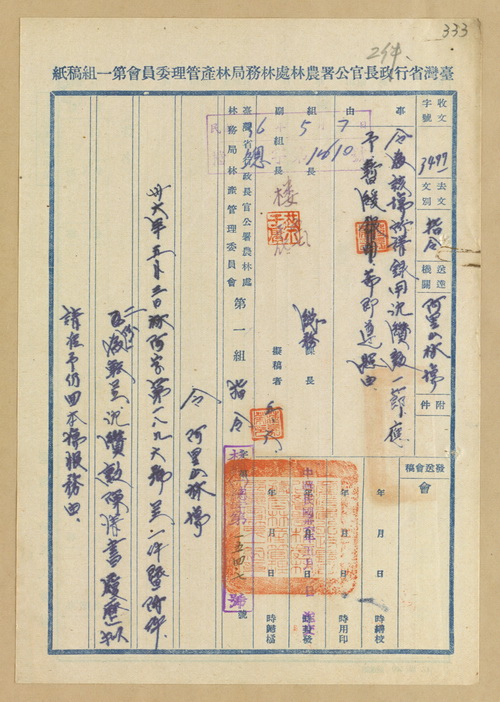 333
臺灣省行政長官公署農林處林務局林產管理委員會第一組稿紙
收文字號 3497
去文別 指令
送達機關 阿里山林場
附件
事由
令為該場所請錄用沈讚勳一節應
予暫緩
組長
副組長
課長
擬稿者
6 5 7
1610
臺灣省行政長官公署農林處
林務局林產管理委員會
第一組
指令
令 阿里山林場
卅六年五月三日林阿字第一八九六號呈一件暨附件
為敢呈沈讚勳陳情書履歷
請准予仍回本場服務由
字第一五四七號
發送會稿
會
年月日時繕校
年月日時用印
年月日時封發
年月日時歸檔